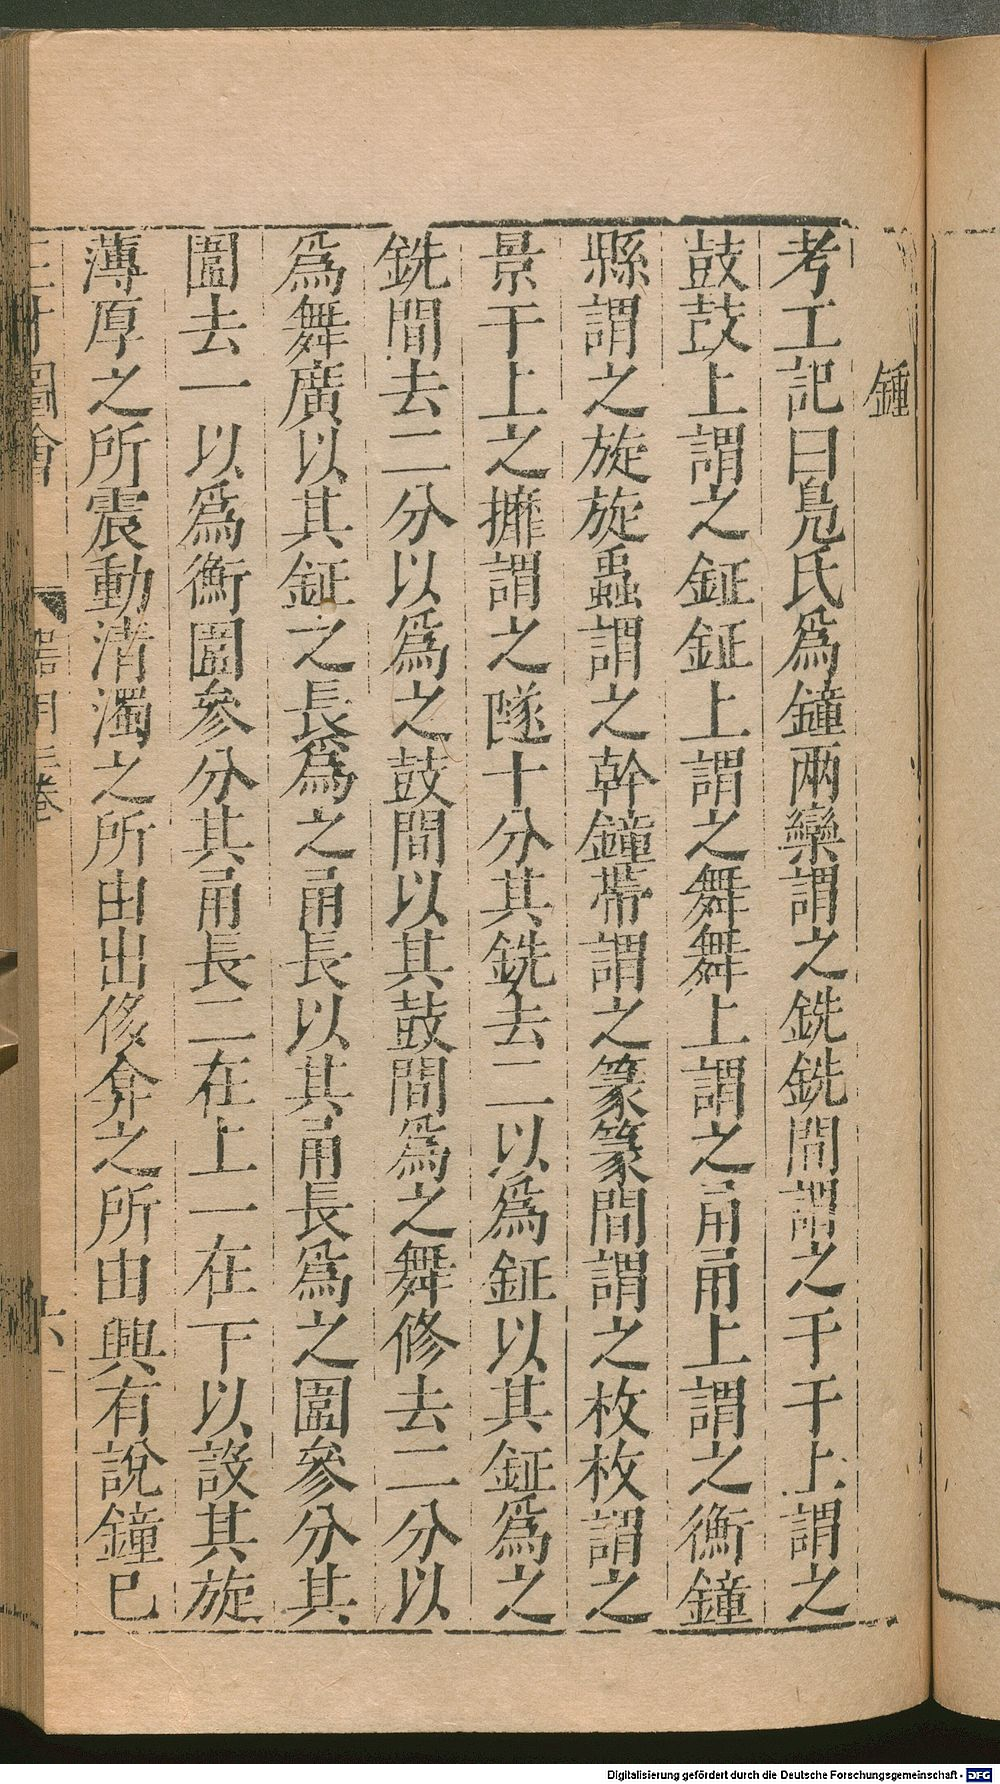 鍾
考工記曰鳧氏爲鐘兩欒謂之銑銑間謂之于于上謂之
鼓鼓上謂之鉦鉦上謂之舞舞上謂之甬甬上謂之衡鐘
縣謂之旋旋蟲謂之幹鐘帶謂之篆篆間謂之枚枚謂之
景于上之攠謂之隧十分其銑去二以爲鉦以其鉦爲之
銑間去二分以爲之鼓間以其鼓間爲之舞修去二分以
爲舞廣以其鉦之長爲之甬長以其甬長爲之圍參分其
圍去一以爲衡圍參分其甬長二在上一在下以設其旋
薄厚之所震動清濁之所由出侈弇之所由興有說鐘已
三才圖會
器用三卷
六
Digitalisierung gefördert durch die Deutsche Forschungsgemeinschaft - DFG